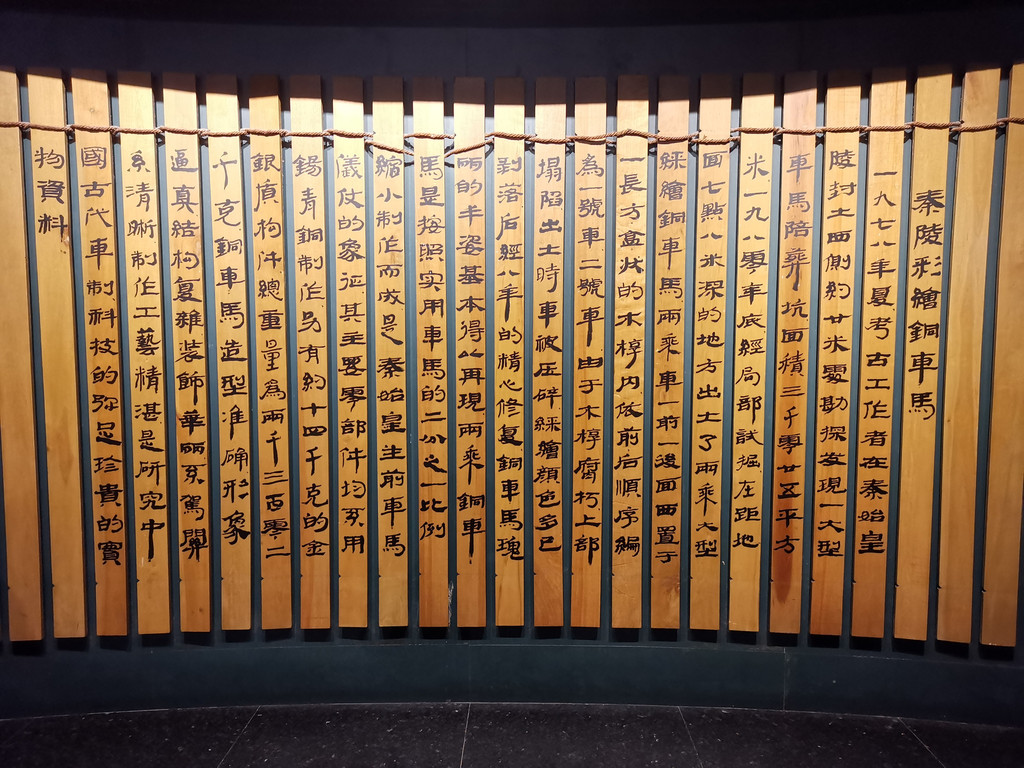 秦陵彩繪銅車馬
一九七八年夏考古工作者在秦始皇
陵封土西側約廿米處勘探发現一大型
車馬陪葬坑面積三千零廿五平方
米一九八零年底經局部試掘在距地
面七點八米深的地方出土了兩乘大型
綵繪銅車馬兩乘車一前一後面西置于
一長方盒狀的木椁内依前后順序編
為一號車二號車由于木椁腐朽上部
塌陷出土時車被压碎綵繪顔色多已
剥落后經八年的精心修复銅車馬瑰
丽的丰姿基本得以再現兩乘銅車
馬是按照实用車馬的二分之一比例
縮小制作而成是秦始皇生前車馬
儀仗的象征其主要零部件均系用
錫青銅制作另有約十四千克的金
銀質构件總重量為兩千三百零二
千克銅車馬造型准确形象
逼真結构复雜裝飾華丽系駕關
系清晰制作工藝精湛是研究中
國古代車制科技的弥足珍貴的實
物資料